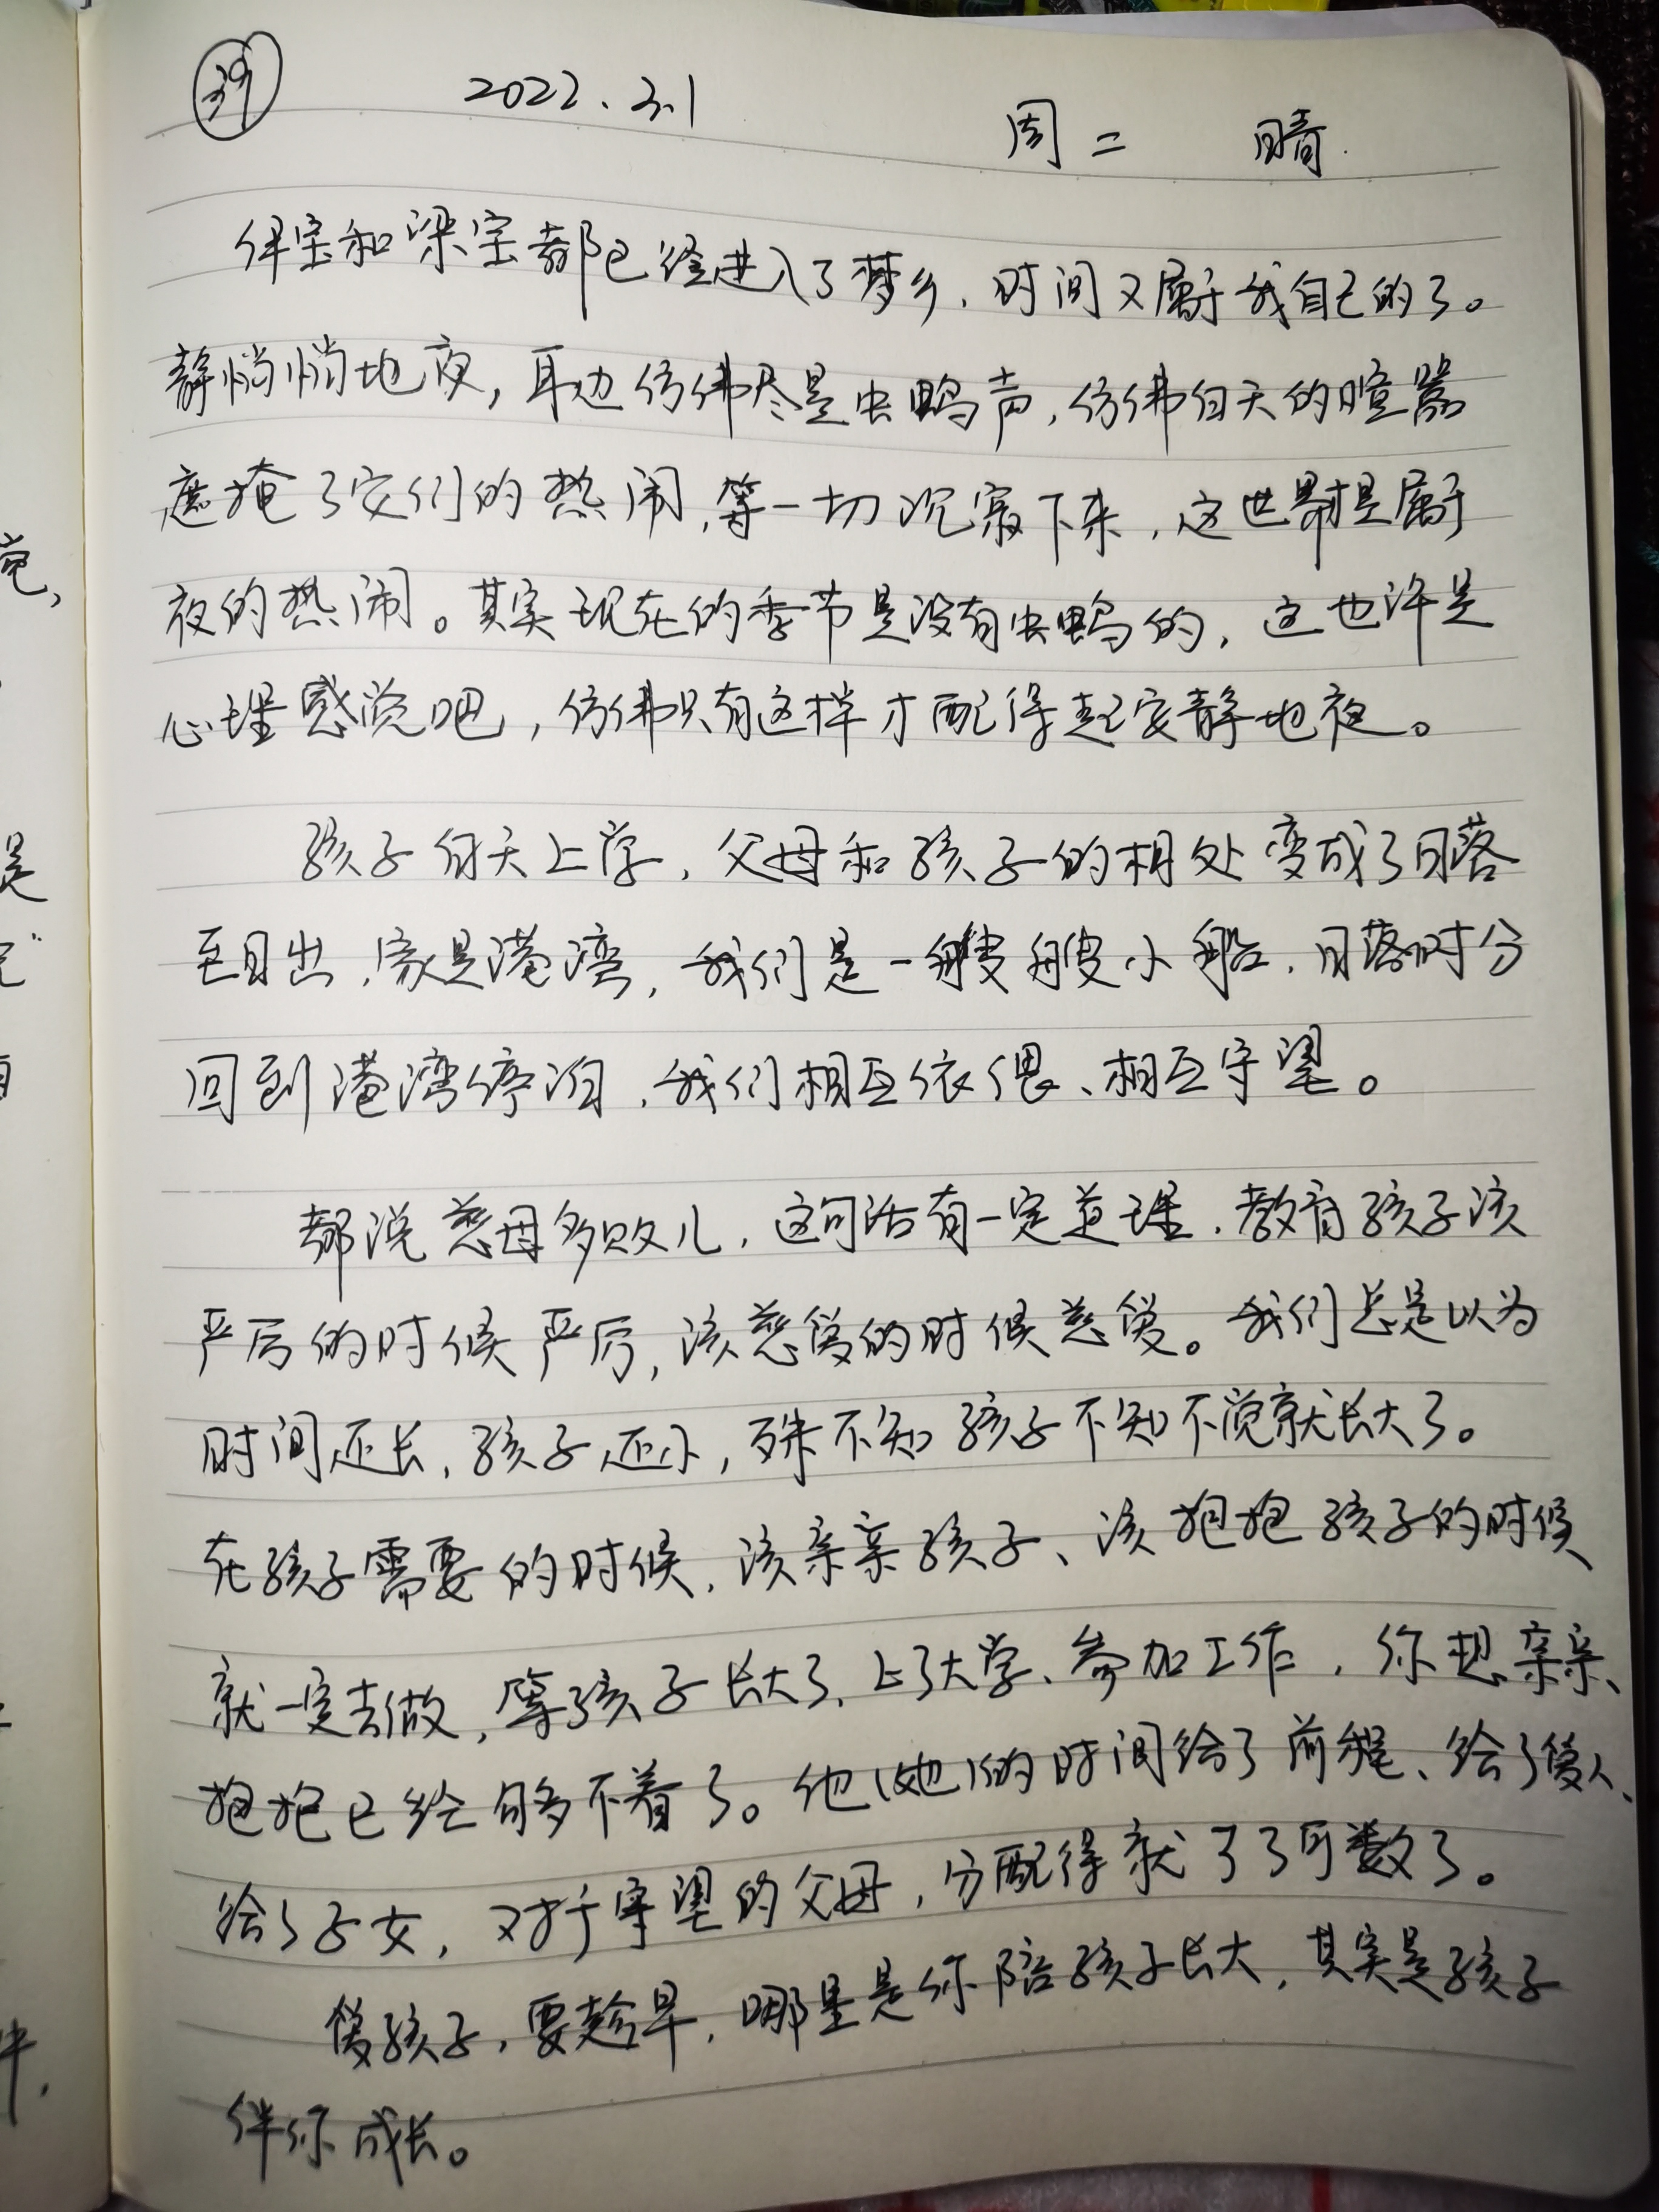 39 2022.3.1 周二 晴.
伴宝和梁宝都已经进入了梦乡，时间又属于我自己的了。
静悄悄地夜，耳边仿佛尽是虫鸣声，仿佛白天的喧嚣
遮掩了它们的热闹，等一切沉寂下来，这世界才是属于
夜的热闹。其实现在的季节是没有虫鸣的，这也许是
心理感觉吧，仿佛只有这样才配得起安静地夜。
孩子白天上学，父母和孩子的相处变成了日落
至日出，家是港湾，我们是一艘艘小船，日落时分
回到港湾停泊，我们相互依偎、相互守望。
都说慈母多败儿，这句话有一定道理，教育孩子该
严厉的时候严厉，该慈爱的时候慈爱。我们总是以为
时间还长，孩子还小，殊不知孩子不知不觉就长大了。
在孩子需要的时候，该亲亲孩子、该抱抱孩子的时候
就一定去做，等孩子长大了，上了大学、参加工作，你想亲亲、
抱抱已经够不着了。他（她）的时间给了前程、给了爱人、
给了子女，对于守望的父母，分配得就了了可数了。
爱孩子，要趁早，哪里是你陪孩子长大，其实是孩子
伴你成长。
觉，
是
自